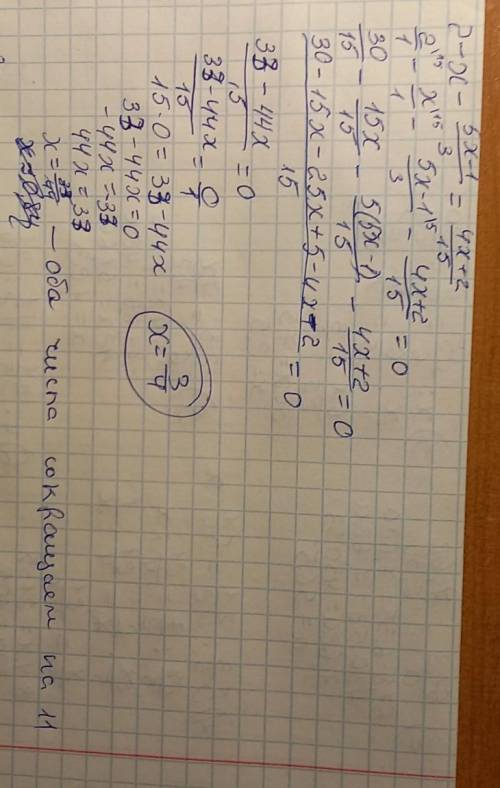 2 - x - \frac{5x-1}{3} = \frac{4x+2}{15}
\frac{2^{15}}{1} - \frac{x^{15}}{1} - \frac{5x-1^{15}}{3} - \frac{4x+2}{15} = 0
\frac{30}{15} - \frac{15x}{15} - \frac{5(5x-1)}{15} - \frac{4x+2}{15} = 0
\frac{30-15x-25x+5-4x-2}{15} = 0
\frac{33-44x}{15} = 0
\frac{33-44x}{15} = \frac{0}{1}
15 · 0 = 33 - 44x
33 - 44x = 0
-44x = -33
44x = 33
x = \frac{33}{44} — оба числа сокращаем на 11
x = \frac{3}{4}